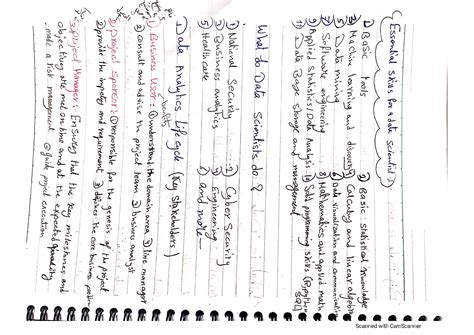 (Essential skills for a data scientist)
① Basic tools ② Basic statistical knowledge
③ Machine learning and
Calculus and linear algebra
⑤ Data mining
Data visualization and communication
⑦ Software engineering
Mathematics and applied math
⑨ Applied statistics/Data Analysis
programming skills (R, python
SQL)
⑪ Data Base storage and management
What do Data Scientists do?
① National Security ② Cyber Security
③ Business analytics ④ Engineering
⑤ Healthcare ⑥ and more
Data Analytics Life cycle (key stakeholders)
① Business User: ① understand the domain area ② line manager
③ consult and advise in project team ④ business analyst
② Project Sponsor: ① Responsible for the genesis of the project
② provide the impetus and requirement ③ defines the core business problem
③ Project Manager: Ensures that the key milestones and
objectives are met on time and at the expected
make a risk management guide project execution
Scanned with CamScanner